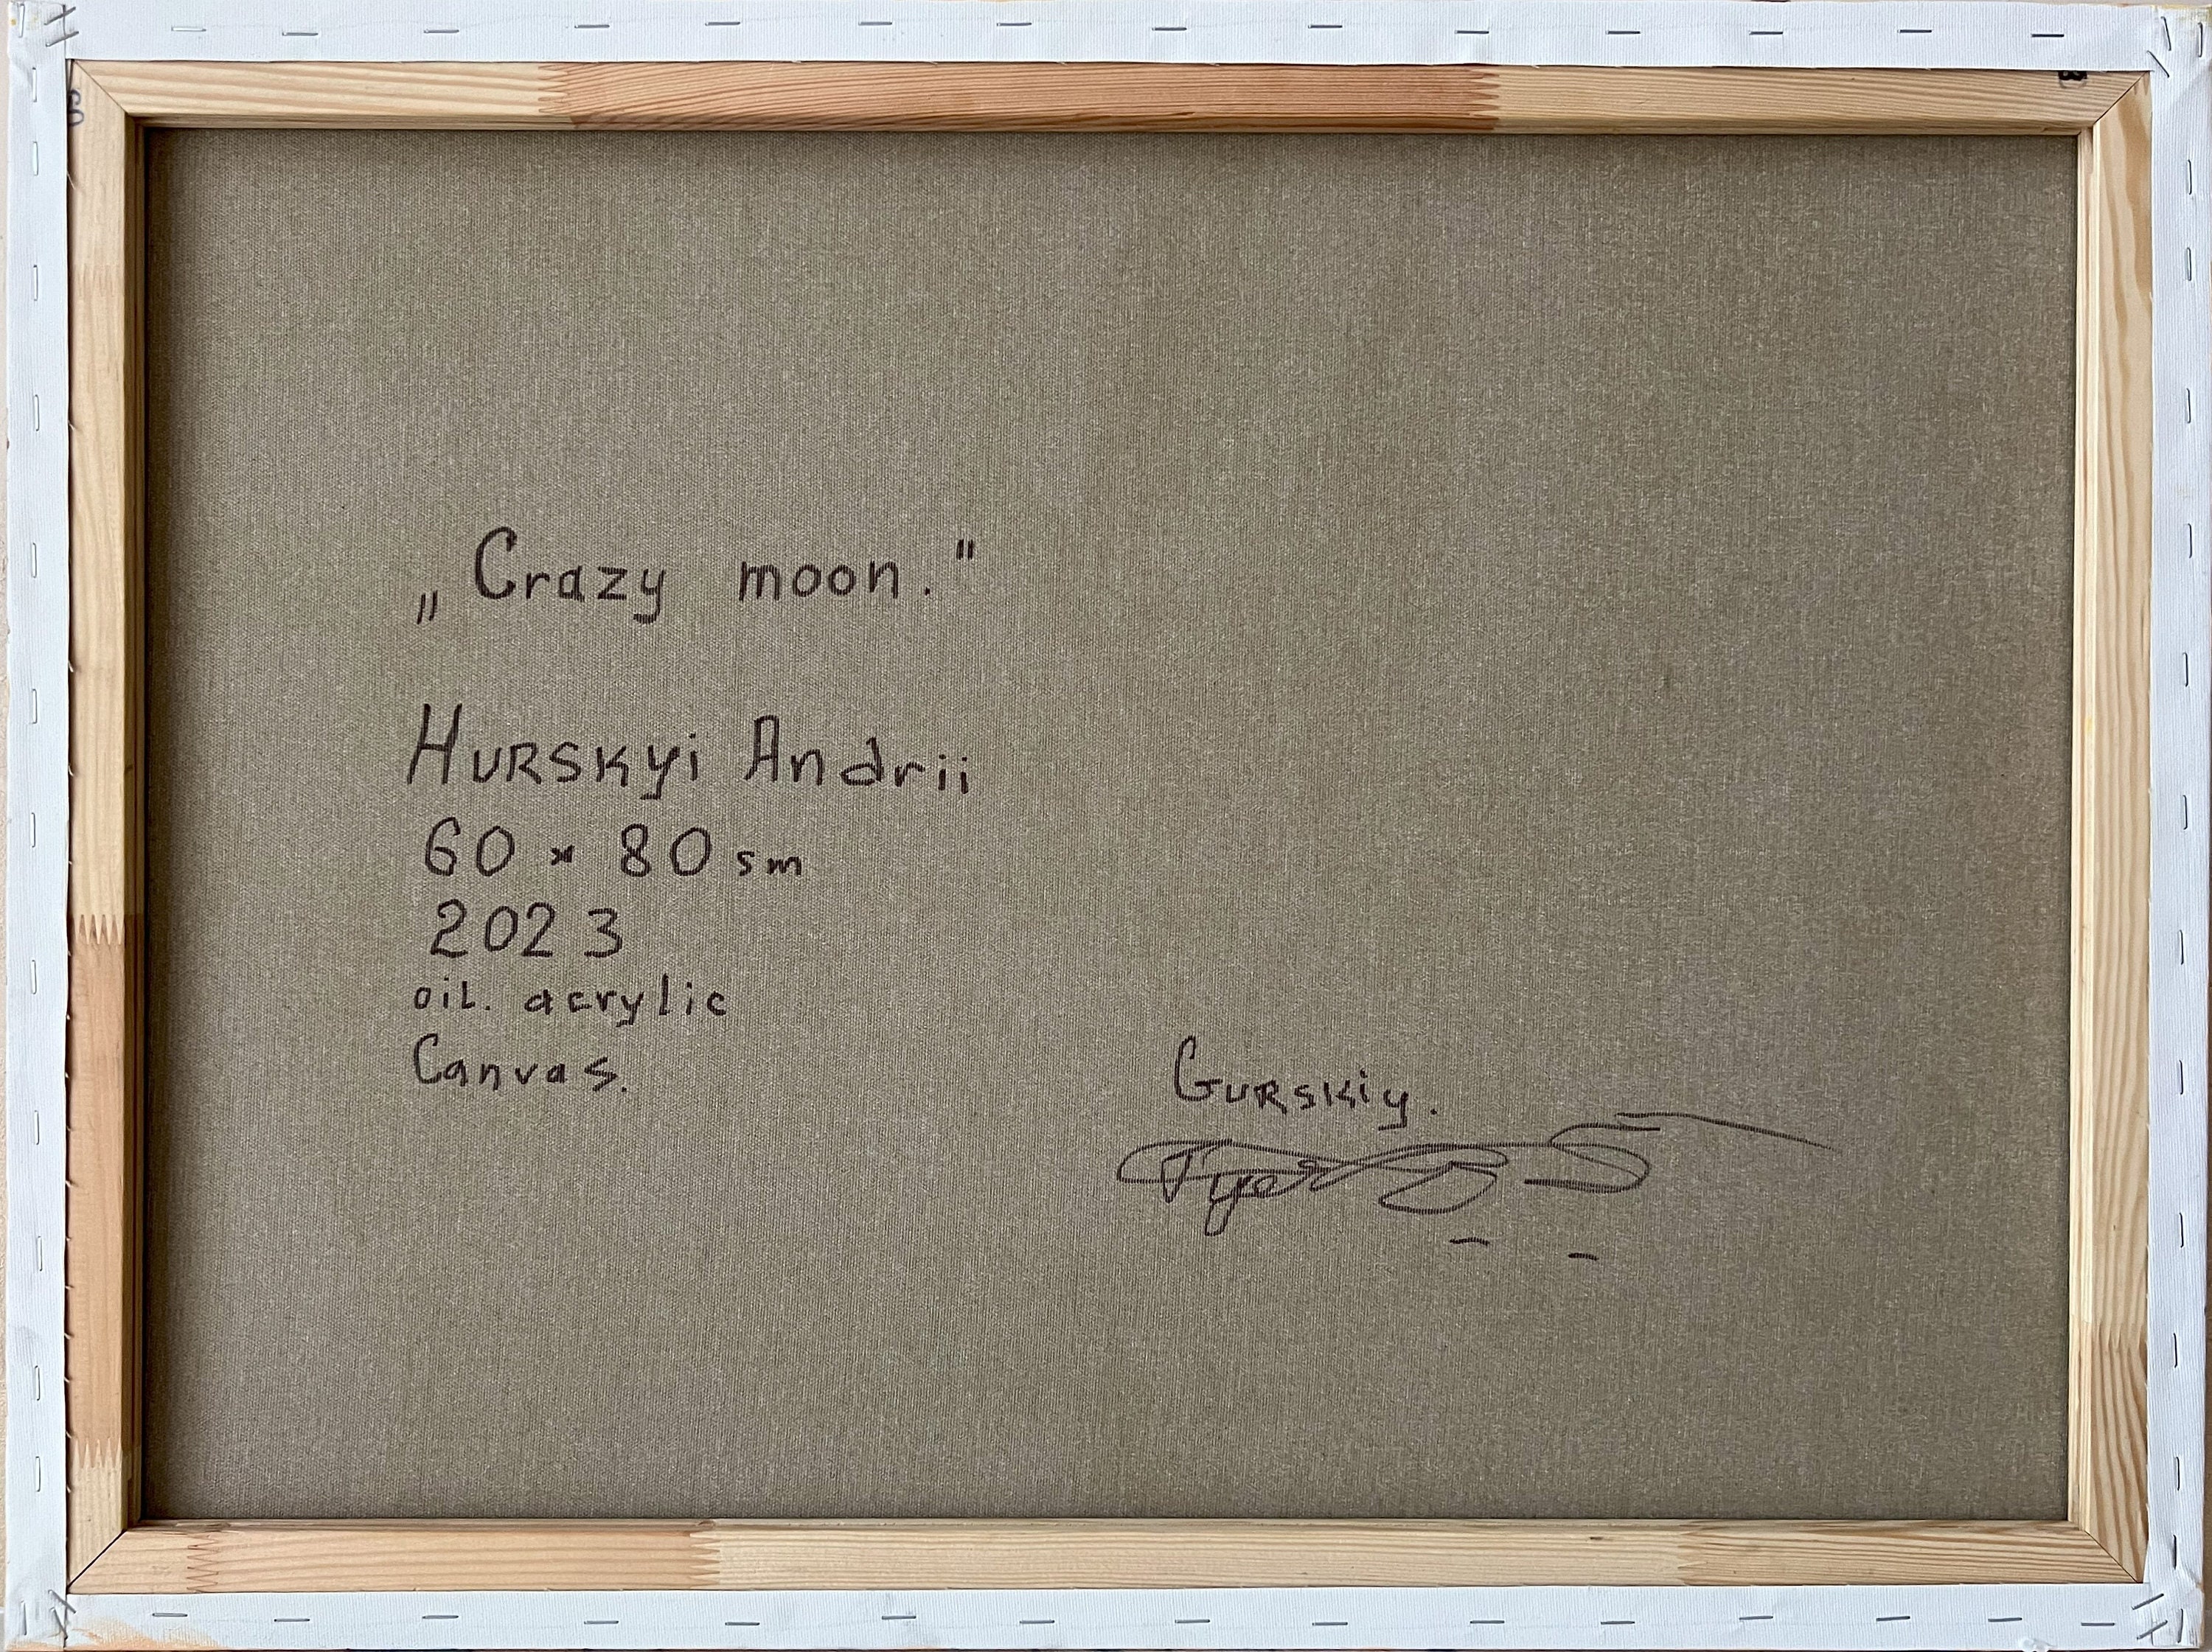 „Crazy moon."
HURSKYi Andrii
60 × 80 sm
2023
oil. acrylic
Canvas.
GURSKiy.